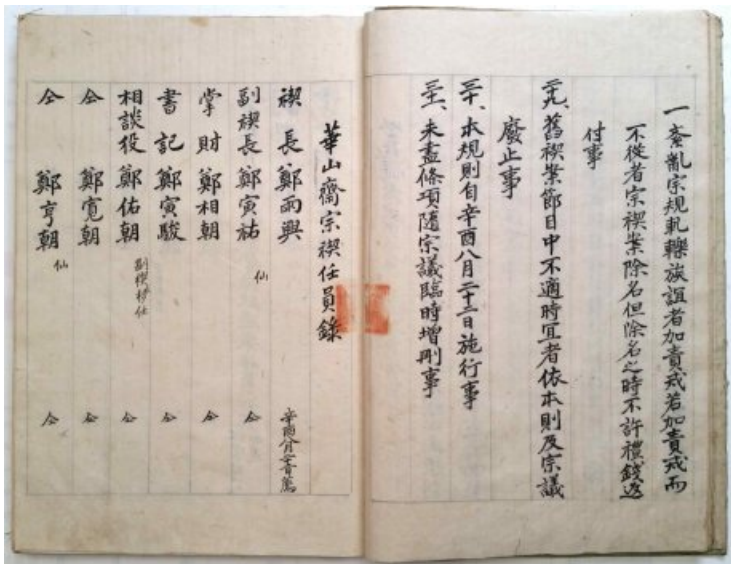 一 紊亂宗規軋轢族誼者加責戒若加責戒而
不從者宗禊案除名但除名之時不許禮錢返
付事
二九、舊禊案節目中不適時宜者依本則及宗議
廢止事
三十、本規則自辛酉八月二十二日施行事
三一、未盡條項隨宗議臨時增刪事
華山齋宗禊任員錄
禊長 鄭雨興 辛酉八月 薦
副禊長 鄭寅祐 仙 仝
掌財 鄭相朝 仝
書記 鄭寅駿 仝
相談役 鄭佑朝 副禊長 仝
仝 鄭寬朝 仝
仝 鄭亨朝 仙 仝